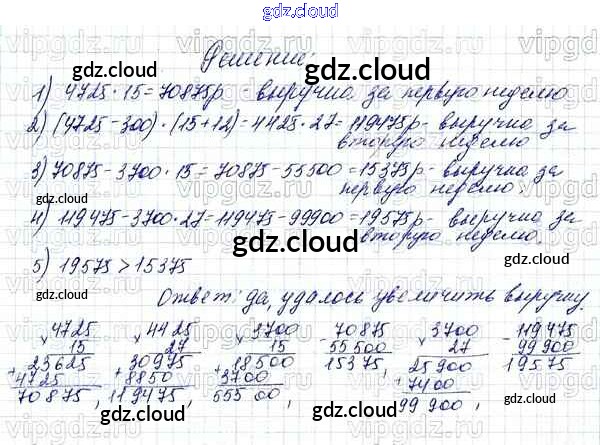 gdz.cloud
Решение:
1) 4725 · 15 = 70875р - выручка за первую неделю
2) (4725 - 300) · (15 + 12) = 4425 · 27 = 119475р - выручка за
вторую неделю
3) 70875 - 3700 · 15 = 70875 - 55500 = 15375р - выручка за
первую неделю.
4) 119475 - 3700 · 27 - 119475 - 99900 = 19575р - выручка за
вторую неделю.
5) 19575 > 15375
Ответ: да, удалось увеличить выручку.
× 4725 × 4425 × 3700 - 70875 × 3700 - 119475
15 27 15 55500 27 99900
+ 23625 + 30975 + 18500 15375, + 25900 19575
4725 8850 3700 7400
70875, 119475, 55500, 99900,
gdz.cloud
gdz.cloud
gdz.cloud
gdz.cloud
gdz.cloud
gdz.cloud
gdz.cloud
gdz.cloud
gdz.cloud
gdz.cloud